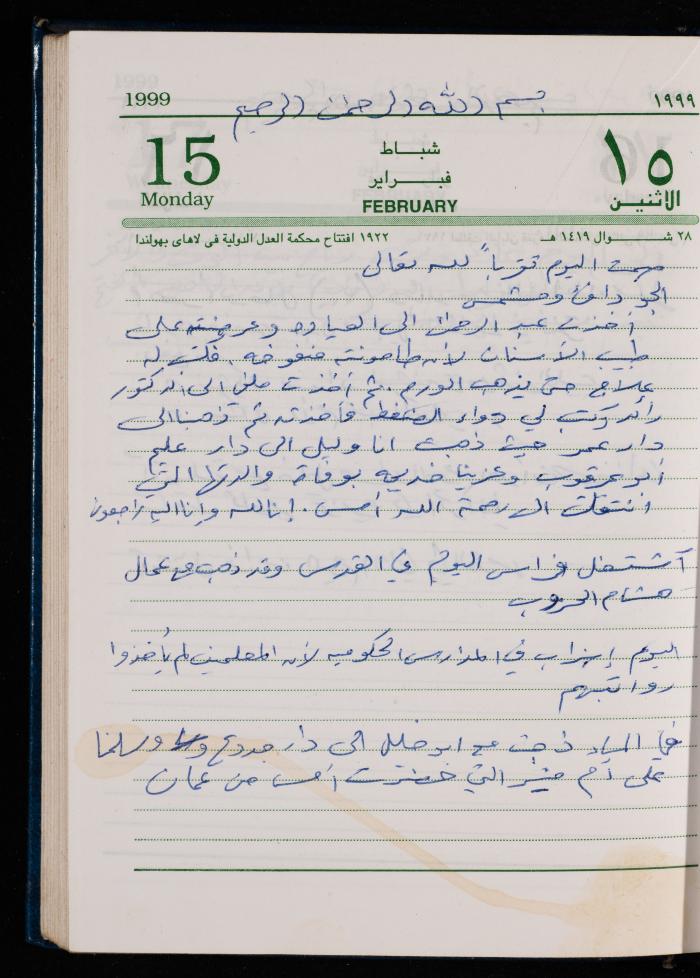 1999
بسم الله الرحمن الرحيم
١٩٩٩
15
Monday
شباط
فبراير
FEBRUARY
١٥
الاثنين
٢٨ شوال ١٤١٩ هـ
١٩٢٢ افتتاح محكمة العدل الدولية فى لاهاى بهولندا
صمت اليوم تقرباً لله تعالى
الجو دافئ ومشمس
أخذت عبد الرحمن الى العيادة وعرضته على
طبيب الأسنان لأن طاحونته منفوخة. فكتب له
علاج حتى يذهب الورم. ثم أخذت ملفي الى الدكتور
رائد وكتب لي دواء الضغط فأخذته ثم ذهبنا الى
دار عمر حيث ذهبت انا وليلى الى دار
ابو عرقوب وعزينا خديجة بوفاة والدتها التي
انتقلت الى رحمة الله أمس. إنا لله وإنا اليه راجعون
اشتغل فراس اليوم في القدس وقد ذهب مع عمال
هشام الحروب
اليوم إضراب في المدارس الحكومية لأن المعلمين لم يأخذوا
رواتبهم
في المساء ذهبت مع ابو خليل الى دار وسلمنا
على أم التي حضرت أمس من عمان